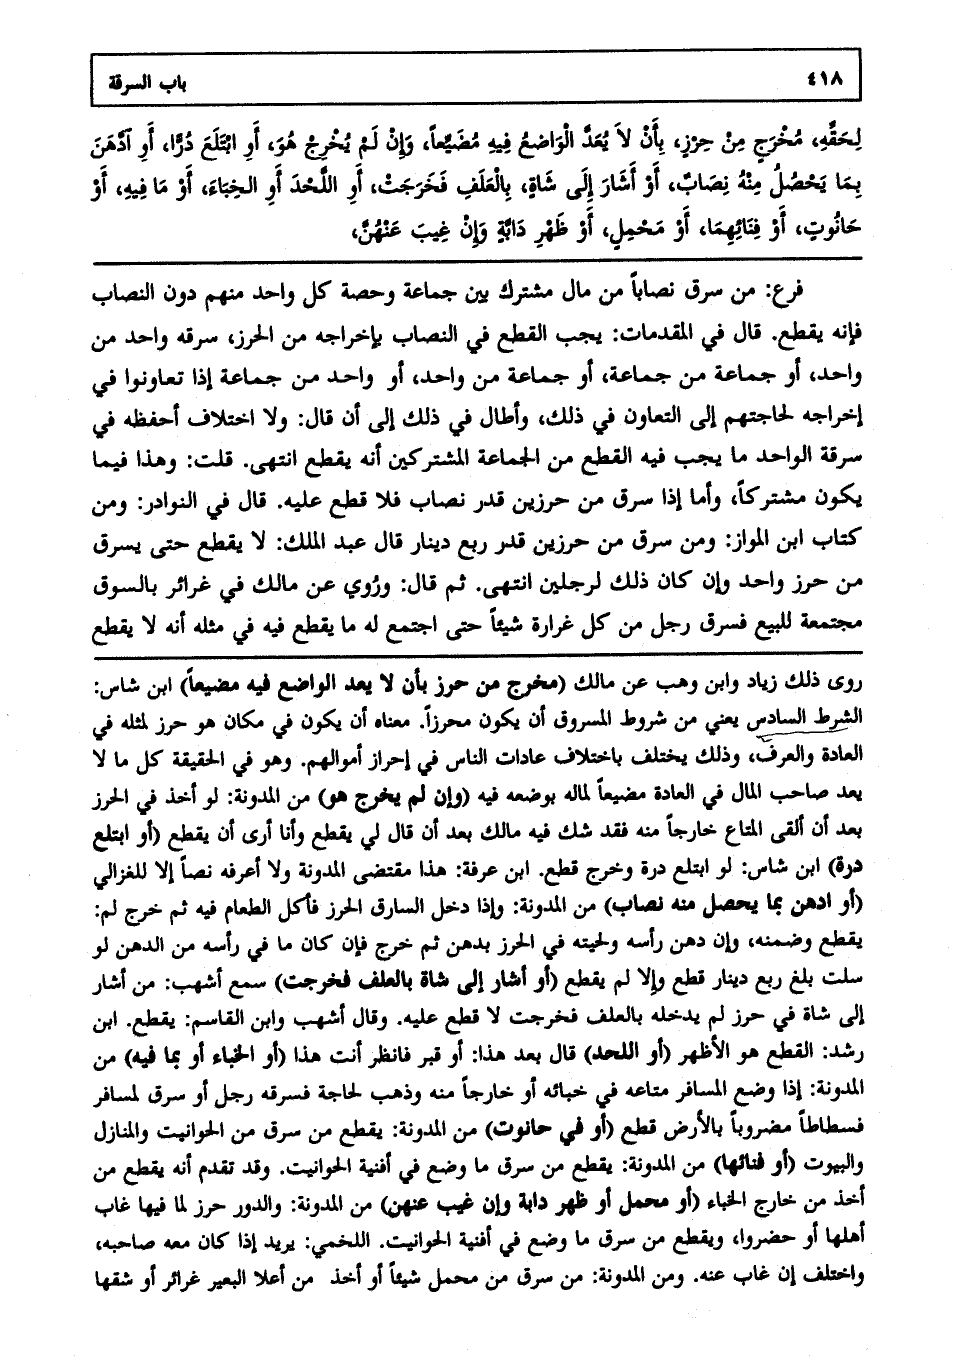 ٤١٨ باب السرقة
لِحَقِّهِ، مُخْرَجٍ مِنْ حِرْزٍ، بِأَنْ لاَ يُعَدَّ الْوَاضِعُ فِيهِ مُضَيِّعاً، وَإِنْ لَمْ يُخْرِجْ هُوَ، أَوِ ابْتَلَعَ دُرًّا، أَوِ آدَّهَنَ
بِمَا يَحْصُلُ مِنْهُ نِصَابٌ، أَوْ أَشَارَ إِلَى شَاةٍ، بِالْعَلَفِ فَخَرَجَتْ، أَوِ اللَّحْدَ أَوِ الخِبَاءَ، أَوْ مَا فِيهِ، أَوْ
حَانُوتٍ، أَوْ فِنَائِهِمَا، أَوْ مَحْمِلٍ، أَوْ ظَهْرِ دَابَّةٍ وَإِنْ غِيبَ عَنْهُنَّ،
فرع: من سرق نصاباً من مال مشترك بين جماعة وحصة كل واحد منهم دون النصاب
فإنه يقطع. قال في المقدمات: يجب القطع في النصاب بإخراجه من الحرز، سرقه واحد من
واحد، أو جماعة من جماعة، أو جماعة من واحد، أو واحد من جماعة إذا تعاونوا في
إخراجه لحاجتهم إلى التعاون في ذلك، وأطال في ذلك إلى أن قال: ولا اختلاف أحفظه في
سرقة الواحد ما يجب فيه القطع من الجماعة المشتركين أنه يقطع انتهى. قلت: وهذا فيما
يكون مشتركاً، وأما إذا سرق من حرزين قدر نصاب فلا قطع عليه. قال في النوادر: ومن
كتاب ابن المواز: ومن سرق من حرزين قدر ربع دينار قال عبد الملك: لا يقطع حتى يسرق
من حرز واحد وإن كان ذلك لرجلين انتهى. ثم قال: ورُوي عن مالك في غرائر بالسوق
مجتمعة للبيع فسرق رجل من كل غرارة شيئاً حتى اجتمع له ما يقطع فيه في مثله أنه لا يقطع
روى ذلك زياد وابن وهب عن مالك (مخرج من حرز بأن لا يعد الواضع فيه مضيعاً) ابن شاس:
الشرط السادس يعني من شروط المسروق أن يكون محرزاً. معناه أن يكون في مكان هو حرز لمثله في
العادة والعرف، وذلك يختلف باختلاف عادات الناس في إحراز أموالهم. وهو في الحقيقة كل ما لا
يعد صاحب المال في العادة مضيعاً لماله بوضعه فيه (وإن لم يخرج هو) من المدونة: لو أخذ في الحرز
بعد أن ألقى المتاع خارجاً منه فقد شك فيه مالك بعد أن قال لي يقطع وأنا أرى أن يقطع (أو ابتلع
درة) ابن شاس: لو ابتلع درة وخرج قطع. ابن عرفة: هذا مقتضى المدونة ولا أعرفه نصاً إلا للغزالي
(أو ادهن بما يحصل منه نصاب) من المدونة: وإذا دخل السارق الحرز فأكل الطعام فيه ثم خرج لم:
يقطع وضمنه، وإن دهن رأسه ولحيته في الحرز بدهن ثم خرج فإن كان ما في رأسه من الدهن لو
سلت بلغ ربع دينار قطع وإلا لم يقطع (أو أشار إلى شاة بالعلف فخرجت) سمع أشهب: من أشار
إلى شاة في حرز لم يدخله بالعلف فخرجت لا قطع عليه. وقال أشهب وابن القاسم: يقطع. ابن
رشد: القطع هو الأظهر (أو اللحد) قال بعد هذا: أو قبر فانظر أنت هذا (أو الخباء أو بما فيه) من
المدونة: إذا وضع المسافر متاعه في خبائه أو خارجاً منه وذهب لحاجة فسرقه رجل أو سرق لمسافر
فسطاطاً مضروباً بالأرض قطع (أو في حانوت) من المدونة: يقطع من سرق من الحوانيت والمنازل
والبيوت (أو فنائها) من المدونة: يقطع من سرق ما وضع في أفنية الحوانيت. وقد تقدم أنه يقطع من
أخذ من خارج الخباء (أو محمل أو ظهر دابة وإن غيب عنهن) من المدونة: والدور حرز لما فيها غاب
أهلها أو حضروا، ويقطع من سرق ما وضع في أفنية الحوانيت. اللخمي: يريد إذا كان معه صاحبه،
واختلف إن غاب عنه. ومن المدونة: من سرق من محمل شيئاً أو أخذ من أعلا البعير غرائر أو شقها